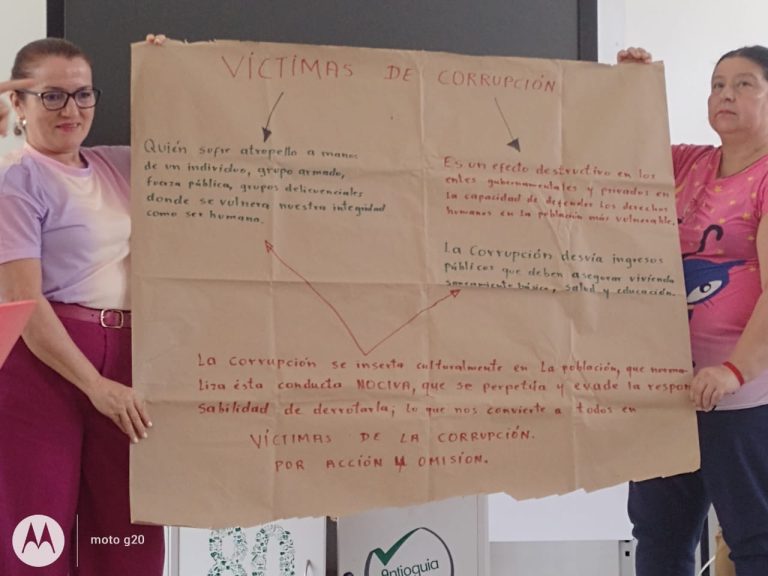 VÍCTIMAS DE CORRUPCIÓN
Quién sufre atropello a manos
de un individuo, grupo armado,
fuerza pública, grupos delicuenciales
donde se vulnera nuestra integridad
como ser humano.
Es un efecto destructivo en los
entes gubernamentales y privados en
la capacidad de defender los derechos
humanos en la población más vulnerable.
La Corrupción desvía ingresos
públicos que deben asegurar vivienda
saneamiento básico, salud y educación.
La corrupción se inserta culturalmente en La población, que norma
liza ésta conducta NOCIVA, que se perpetúa y evade la respon
sabilidad de derrotarla; lo que nos convierte a todos en
VÍCTIMAS DE LA CORRUPCIÓN.
POR ACCIÓN Y OMISIÓN.
80
Antioquia
moto g20